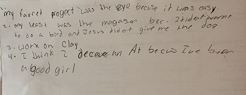 my favret project was the eye because it was easy
2. my least was the magazen bec. I didnt
to do a bird and Jesus didnt give me the dog
3. work on clay
4. I think I deceve an A+ becus Ive been
a good girl